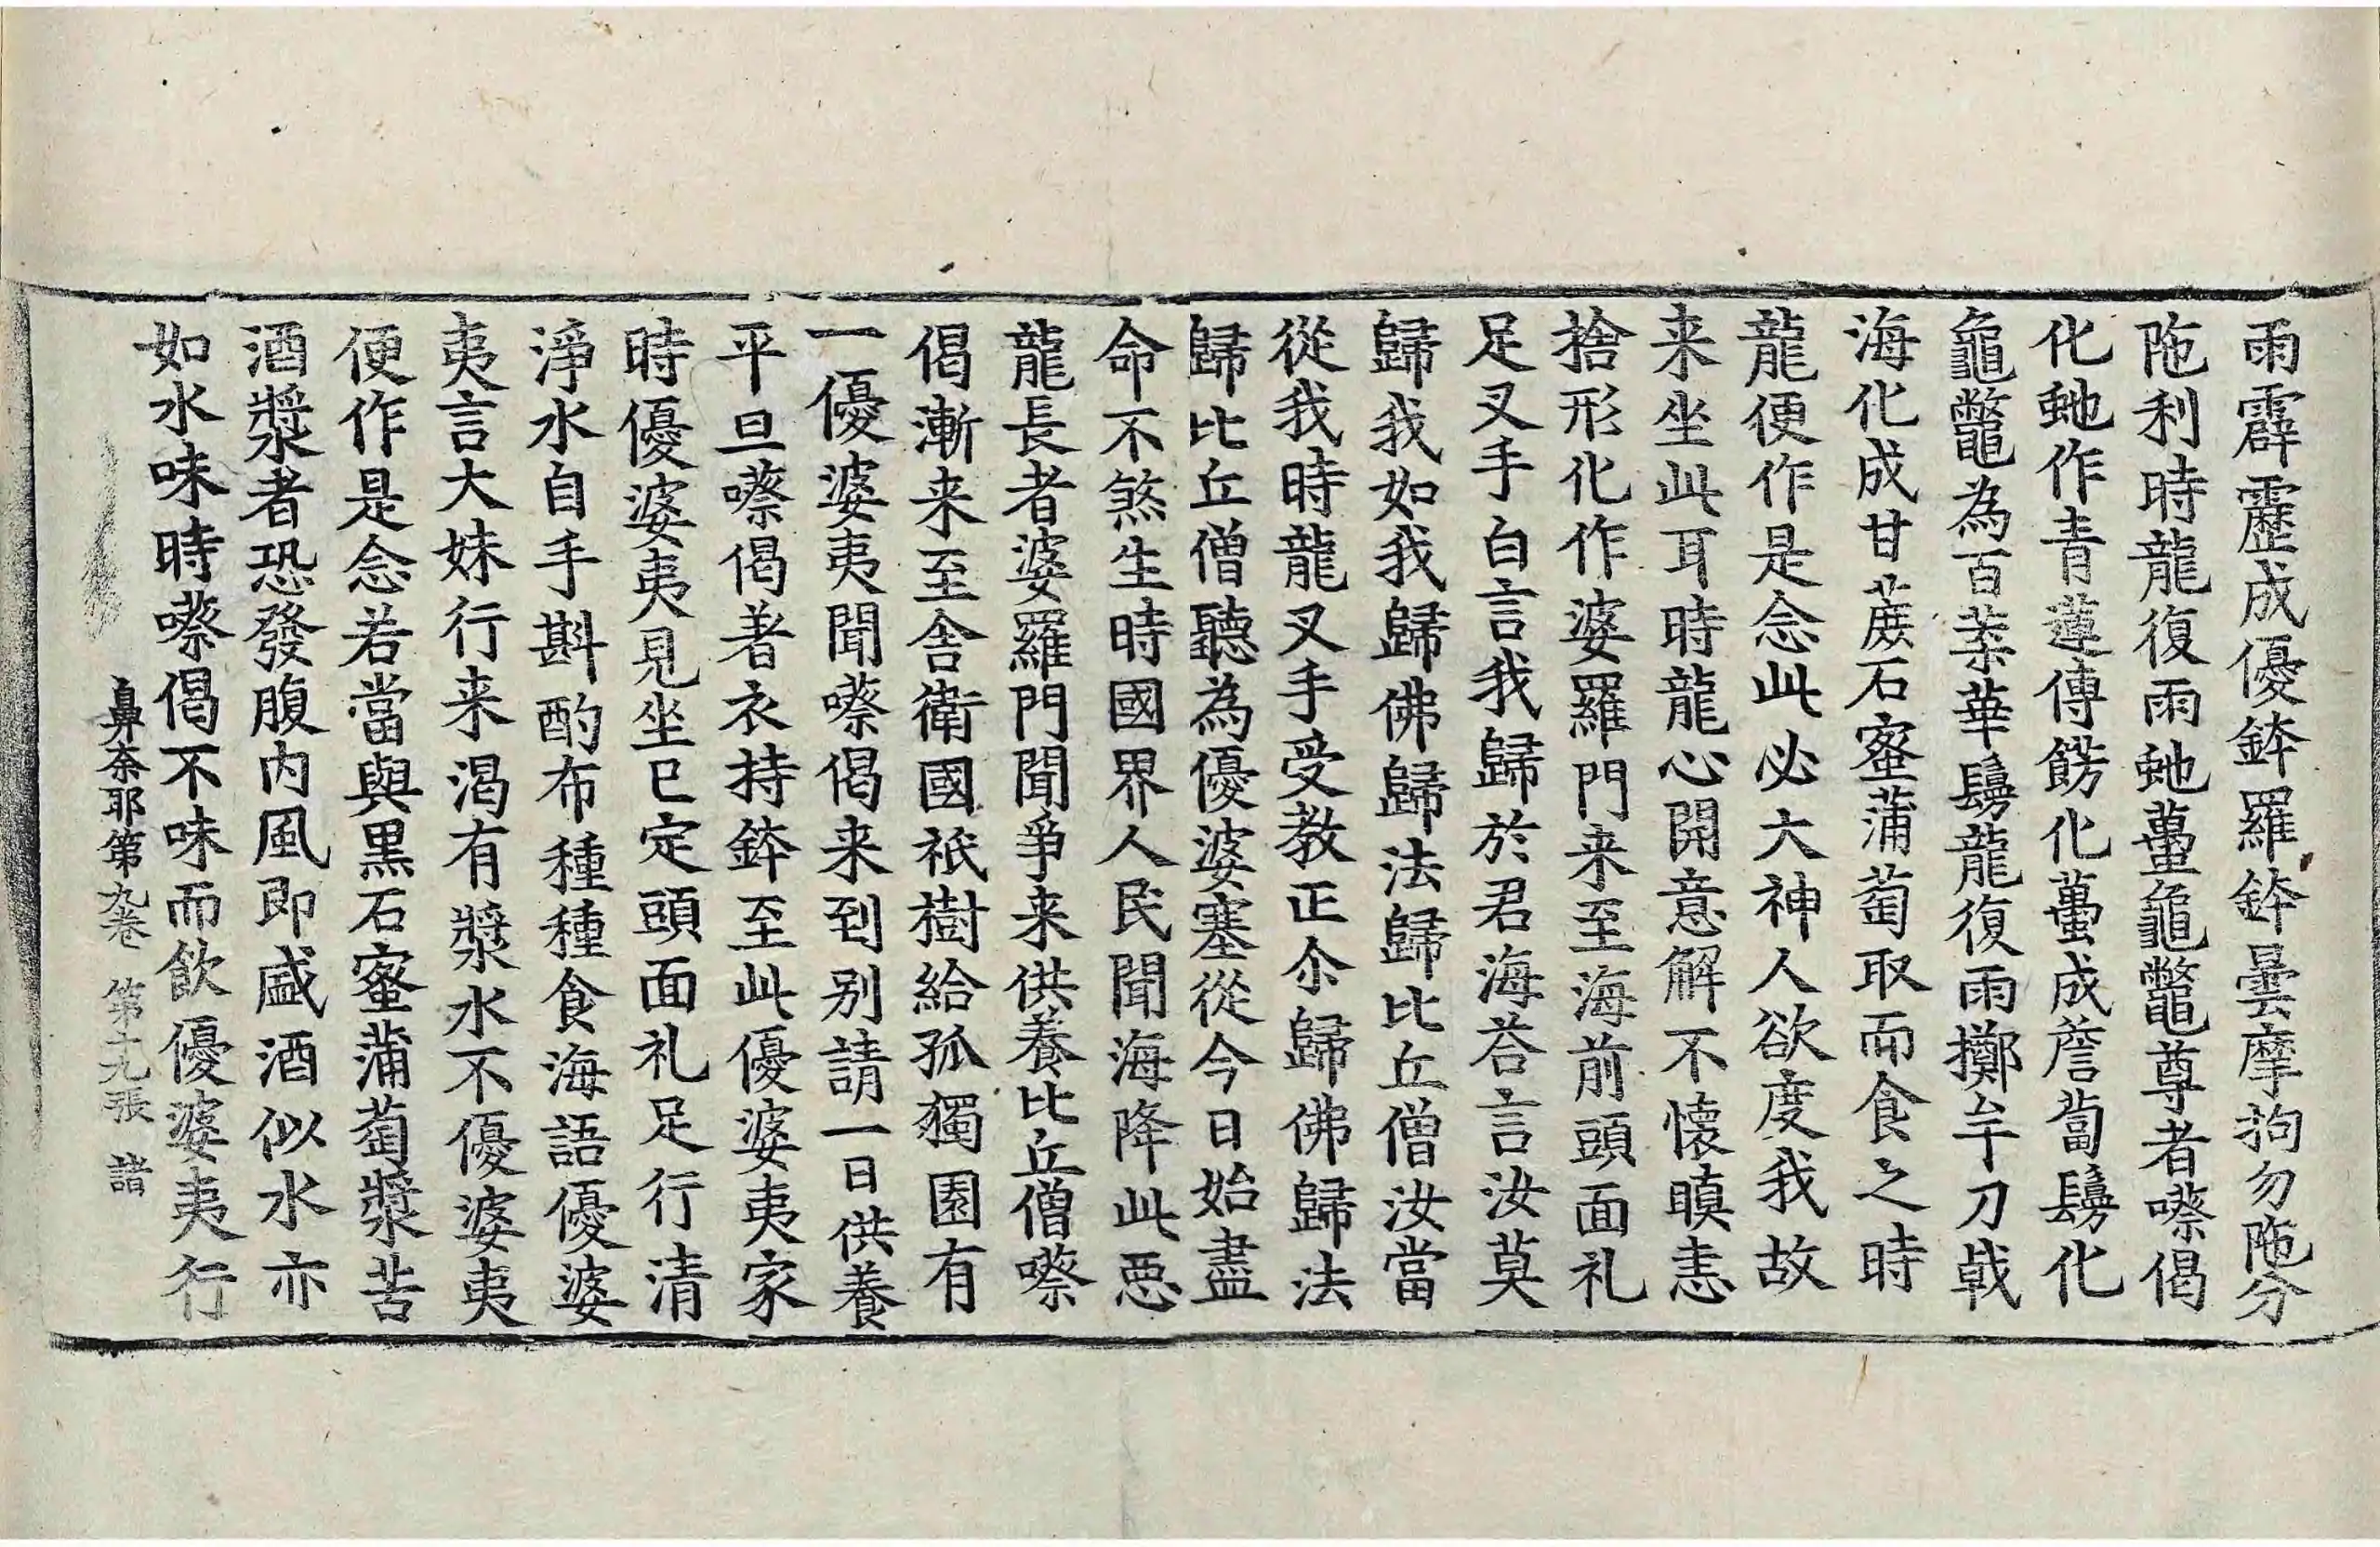 雨霹靂成優鉢羅鉢曇摩拘勿陁分
陁利時龍復雨虵蠆龜鼈尊者嚓偈
化虵作青蓮傅餝化蠆成薝蔔鬘化
龜鼈為百葉華鬘龍復雨擲矛刀戟
海化成甘蔗石蜜蒲萄取而食之時
龍便作是念此必大神人欲度我故
来坐此耳時龍心開意解不懷瞋恚
捨形化作婆羅門来至海前頭面礼
足叉手白言我歸於君海荅言汝莫
歸我如我歸佛歸法歸比丘僧汝當
從我時龍叉手受教正尒歸佛歸法
歸比丘僧聽為優婆塞從今日始盡
命不煞生時國界人民聞海降此惡
龍長者婆羅門聞爭来供養比丘僧嚓
偈漸来至舎衛國祇樹給孤獨園有
一優婆夷聞嚓偈来到別請一日供養
平旦嚓偈著衣持鉢至此優婆夷家
時優婆夷見坐已定頭面礼足行清
淨水自手斟酌布種種食海語優婆
夷言大妹行来渴有漿水不優婆夷
便作是念若當與黒石蜜蒲萄漿苦
酒漿者恐發腹内風即盛酒似水亦
如水味時嚓偈不味而飲優婆夷行
鼻奈耶第九卷 第十九張 諸